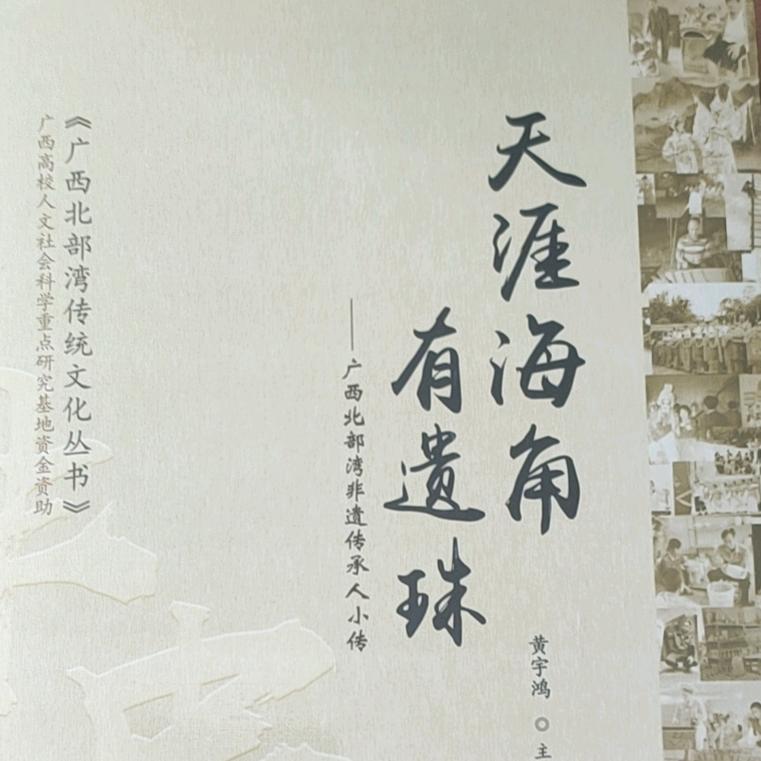 天涯海角
有遗珠
——广西北部湾非遗传承人小传
黄宇鸿 ◎ 主
《广西北部湾传统文化丛书》
广西高校人文社会科学重点研究基地资金资助